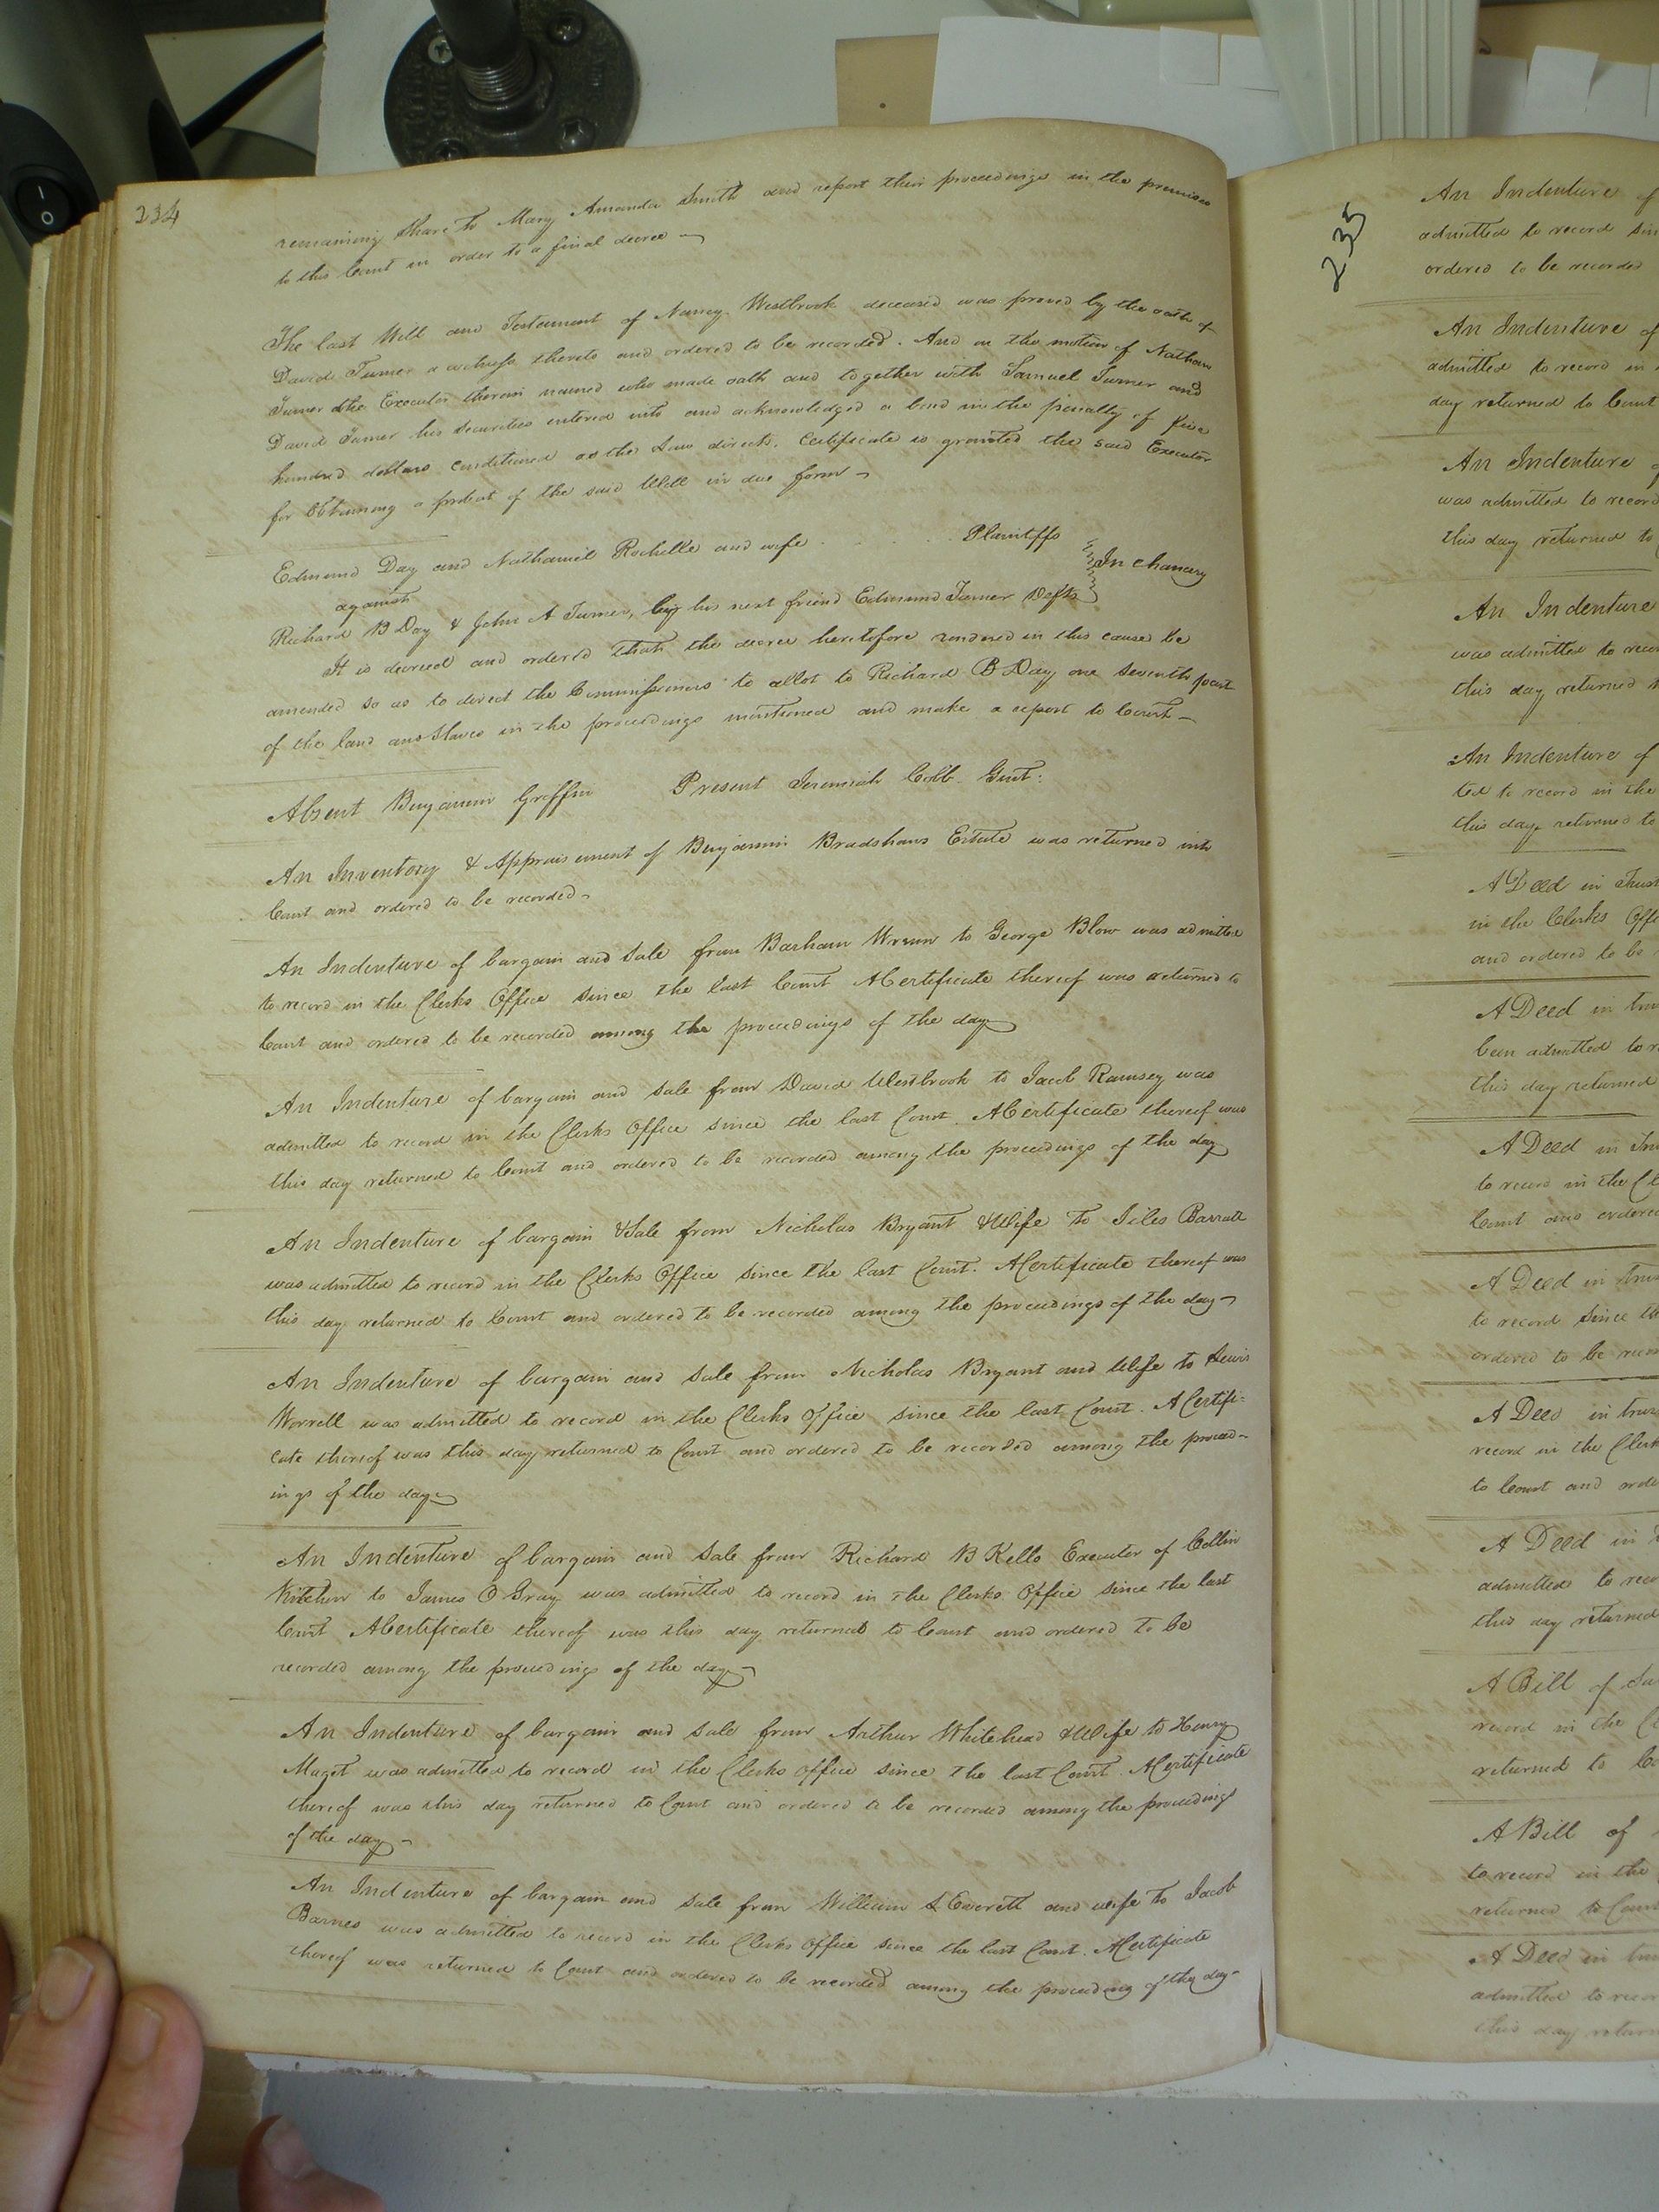 234
remaining Share to Mary Amanda Smith and report their proceedings in the premises
to this Court in order to a final decree
The last Will and Testament of Nancy Westbrook deceased was proved by the oath of
David Turner a witness thereto and ordered to be recorded. And on the motion of Nathan
Turner the Executor therein named who made oath and together with Samuel Turner and
David Turner his securities entered into and acknowledged a bond in the penalty of five
hundred dollars conditioned as the Law directs. Certificate is granted the said Executor
for obtaining a probat of the said Will in due form
Edmund Day and Nathaniel Rochelle and wife Plaintffs
against In Chancery
Richard B Day & John A Turner, by his next friend Edmund Turner Defts
It is decreed and ordered that the decree heretofore rendered in this cause be
amended so as to direct the Commissioners to allot to Richard B Day one seventh part
of the land and Slaves in the proceedings mentioned and make a report to Court
Absent Benjamin Griffin Present Jeremiah Cobb Gent:
An Inventory & Appraisement of Benjamin Bradshaws Estate was returned into
Court and ordered to be recorded
An Indenture of bargain and Sale from Barham Wrenn to George Blow was admitted
to record in the Clerks Office since the last Court A Certificate thereof was returned to
Court and ordered to be recorded among the proceedings of the day
An Indenture of bargain and sale from David Westbrook to Jacob Ramsey was
admitted to record in the Clerks Office since the last Court. A Certificate thereof was
this day returned to Court and ordered to be recorded among the proceedings of the day
An Indenture of bargain & Sale from Nicholas Bryant & Wife to Giles Barrett
was admitted to record in the Clerks Office since the last Court. A Certificate thereof was
this day returned to Court and ordered to be recorded among the proceedings of the day
An Indenture of bargain and sale from Nicholas Bryant and Wife to Lewis
Worrell was admitted to record in the Clerks Office since the last Court. A Certifi-
cate thereof was this day returned to Court and ordered to be recorded among the proceed-
ings of the day
An Indenture of bargain and Sale from Richard B Kello Executor of Collin
Kitchen to James O Gray was admitted to record in the Clerks Office since the last
Court A Certificate thereof was this day returned to Court and ordered to be
recorded among the proceedings of the day
An Indenture of bargain and sale from Arthur Whitehead & Wife to Henry
Maget was admitted to record in the Clerks Office since the last Court. A Certificate
thereof was this day returned to Court and ordered to be recorded among the proceedings
of the day
An Indenture of bargain and sale from William S Everett and wife to Jacob
Barnes was admitted to record in the Clerks Office since the last Court. A Certificate
thereof was returned to Court and ordered to be recorded among the proceeding of the day
235
An Indenture of
admitted to record
ordered to be recorded
An Indenture of
admitted to record in
day returned to Court
An Indenture
was admitted to record
this day returned to
An Indenture
was admitted to
this day returned
An Indenture of
ted to record in the
this day returned to
A Deed in Trust
in the Clerks
and ordered to be
A Deed in
been admitted to
this day returned
A Deed in
to record in the
Court and ordered
A Deed in
to record since
ordered to be
A Deed in
record in the
to Court and
A Deed in
admitted to
this day returned
A Bill of
record in the
returned to
A Bill of
to record in the
returned to
A Deed in
admitted to
this day